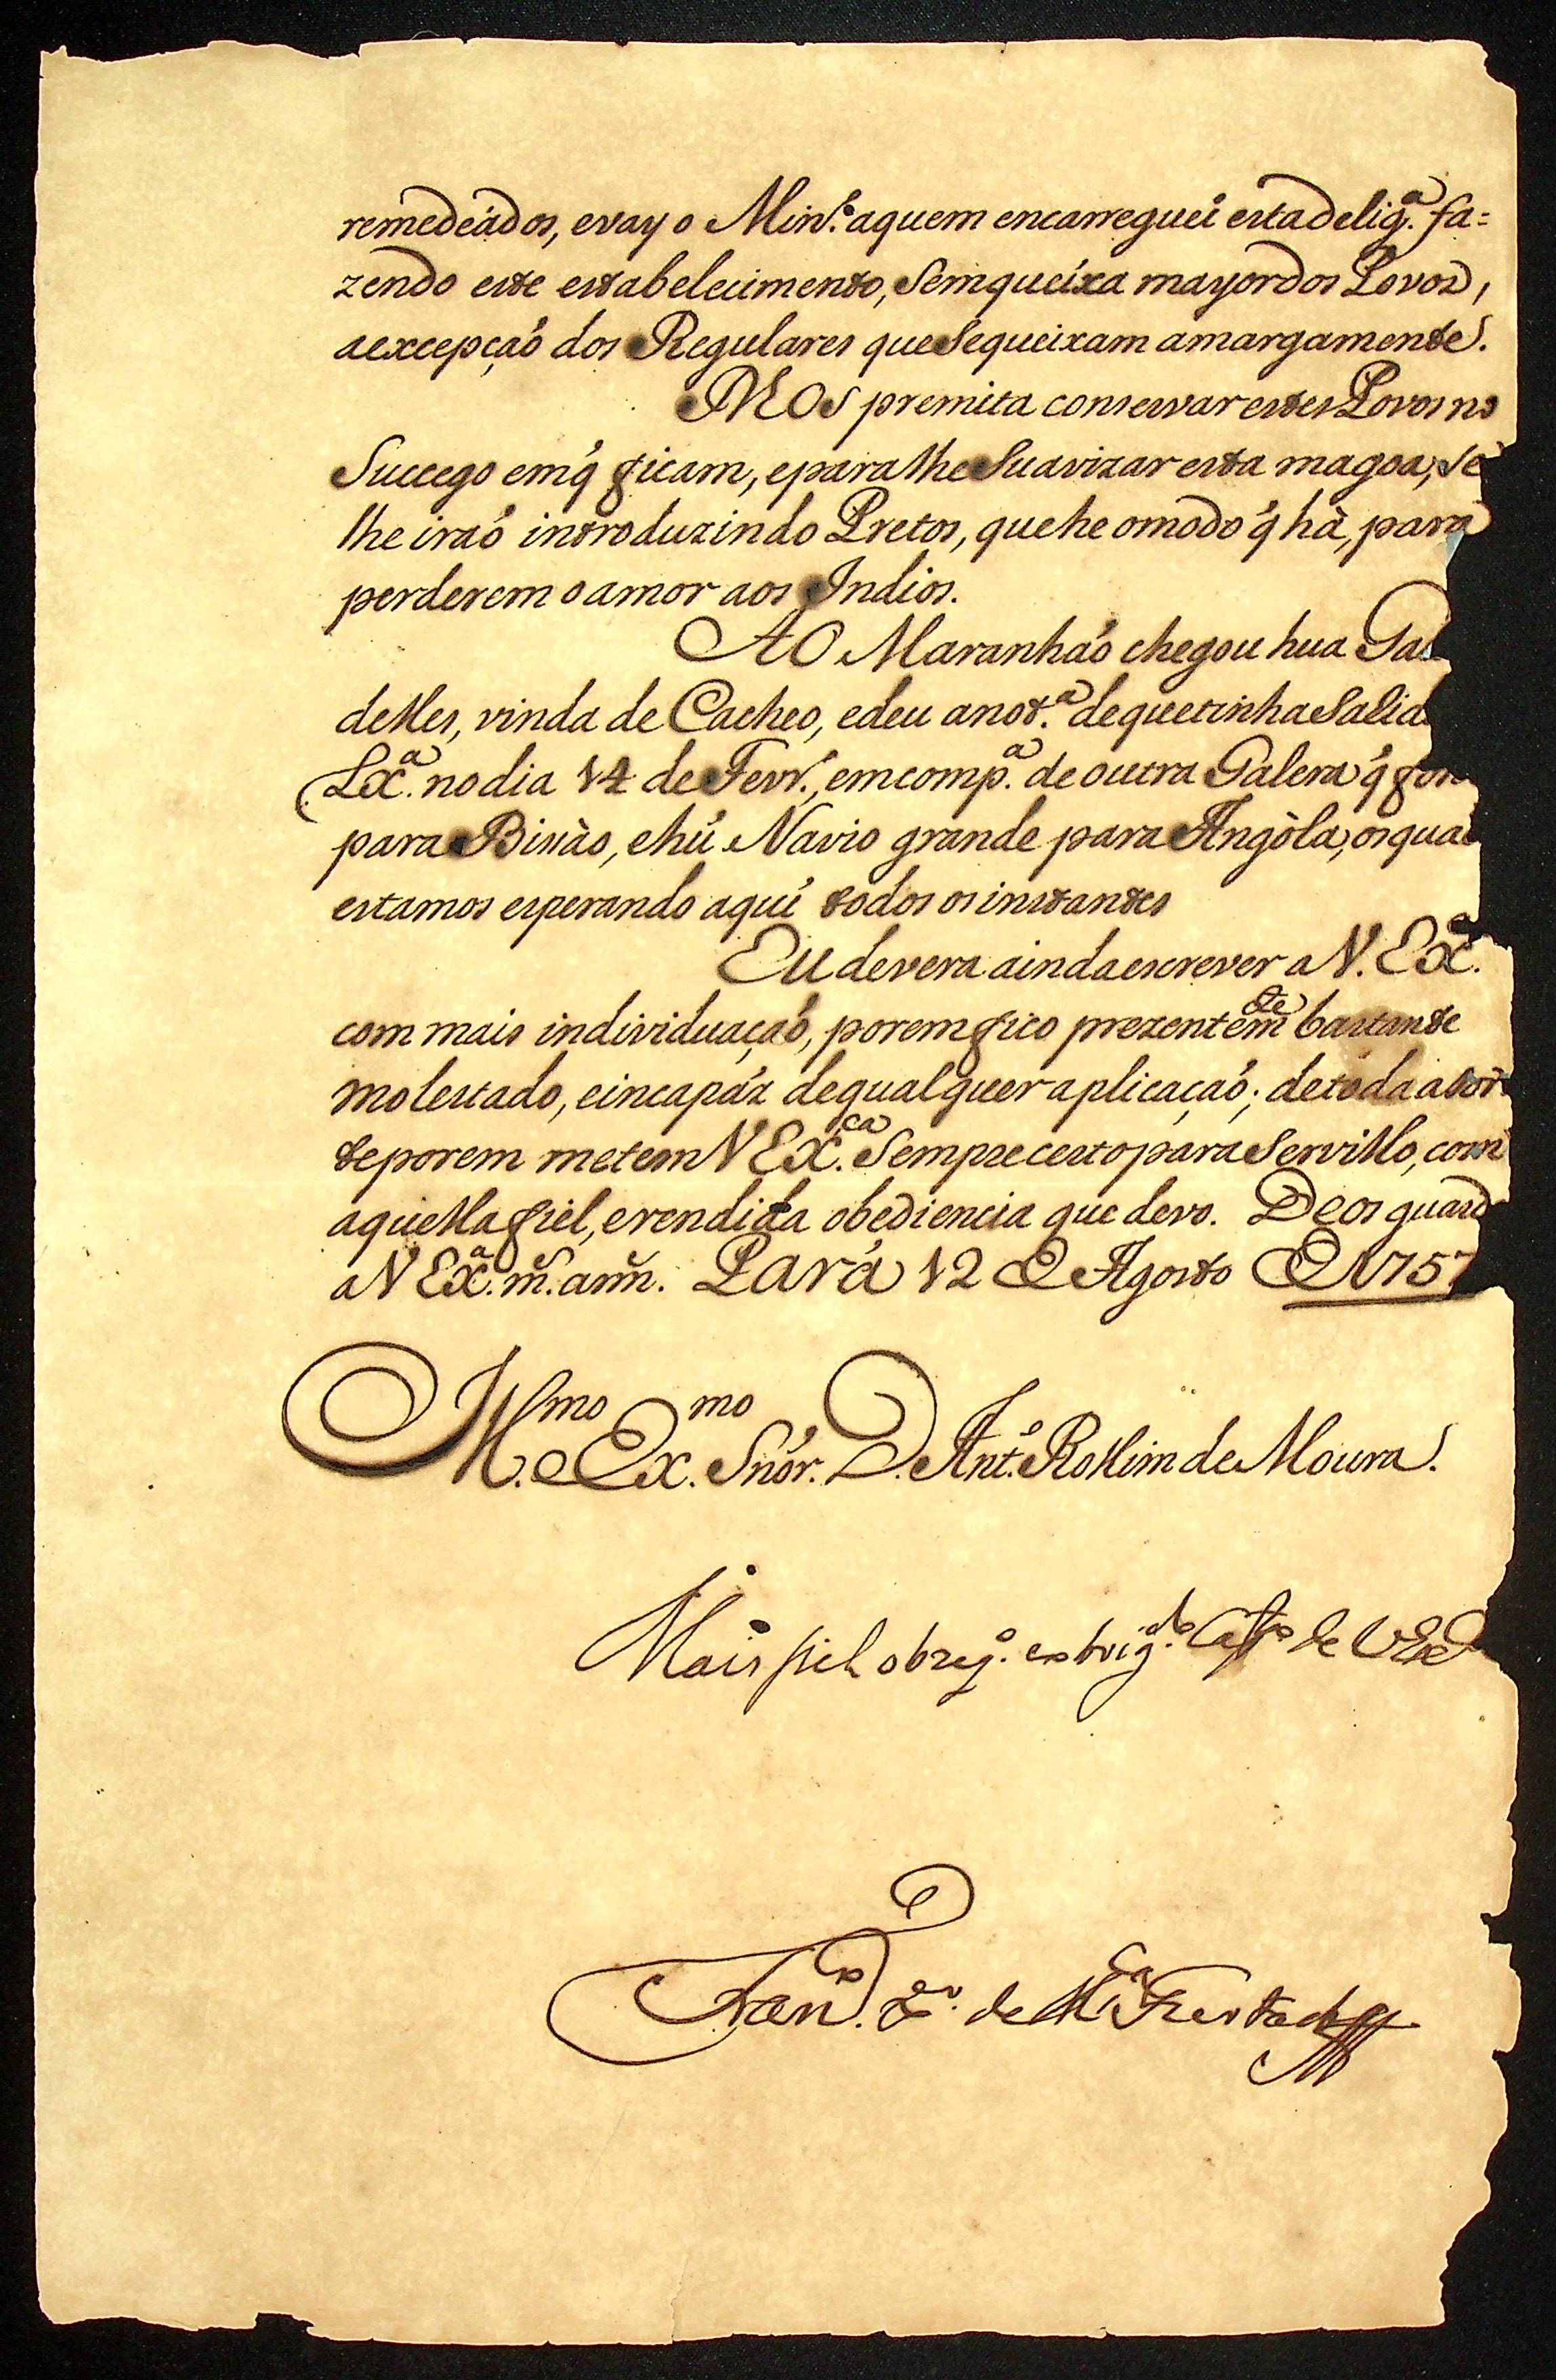 remedeádos, evay o Min.º aquem encarreguei esta delig.ª fa=
zendo este estabelecimento, Sem queixa mayor dos Povos,
aexcepçaó dos Regulares que Sequeixam amargamente.
DEOS premita conservar estes Povos no
Succego em q́ ficam, epara lhe Suavizar esta magoa, Se
lhe iraó introduzindo Pretos, que he omodo q́ hà, para
perderem o amor aos Indios.
AO Maranhaó chegou hua Ga
delles, vinda de Cacheo, edeu anot.ª de que tinha Salid
Lx.ª no dia 14 de Fevr.º, em comp.ª de outra Galera q́ for
para Bissào, ehú Navio grande para Angòla, os qua
estamos esperando aquí todos os instantes
Eu devera ainda escrever a V. Ex.ª
com mais individuaçaó, porem fico prezentem.te bastante
molestado, eincapáz de qualquer aplicaçaó; de toda a sor
te porem me tem V Ex.ca Sempre certo para Servillo, com
aquella fiel, erendida obediencia que devo. Deos guard
a V Ex.ª m. ann. Pará 12 de Agosto de 1757
Ill.mo e Ex.mo Snór. D. Ant.º Rollim de Moura.
Mais fiel obzeq.º e obrig.do Cat.º de V Ex
Fran.co X.er de M.ça Furtado